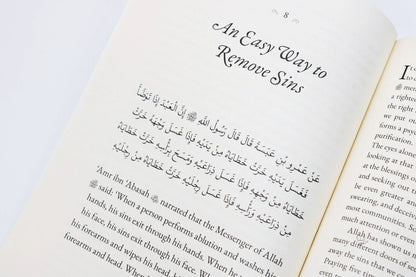 8
An Easy Way to
Remove Sins
عَنْ عَمْرِو بْنِ عَبَسَةَ قَالَ قَالَ رَسُولُ اللهِ ﷺ إِنَّ الْعَبْدَ إِذَا تَوَضَّأَ
فَغَسَلَ يَدَيْهِ خَرَّتْ خَطَايَاهُ مِنْ يَدَيْهِ فَإِذَا غَسَلَ وَجْهَهُ خَرَّتْ خَطَايَاهُ
مِنْ وَجْهِهِ فَإِذَا غَسَلَ ذِرَاعَيْهِ وَمَسَحَ بِرَأْسِهِ خَرَّتْ خَطَايَاهُ
مِنْ ذِرَاعَيْهِ وَرَأْسِهِ فَإِذَا غَسَلَ رِجْلَيْهِ خَرَّتْ خَطَايَاهُ مِنْ رِجْلَيْهِ
'Amr ibn Abasah ﷺ narrated that the Messenger of Allah
ﷺ said: When a person performs ablution and washes his
hands, his sins exit through his hands. When he washes
his face, his sins exit through his face. When he washes his
forearms and wipes his head,
forearms and head. When
looking at that
at the blessings o
of seeking
be even greater
and swear,
most communities. So
much attention or ev
Allah has shown
many different doors of
away the sins that we
Praying five times